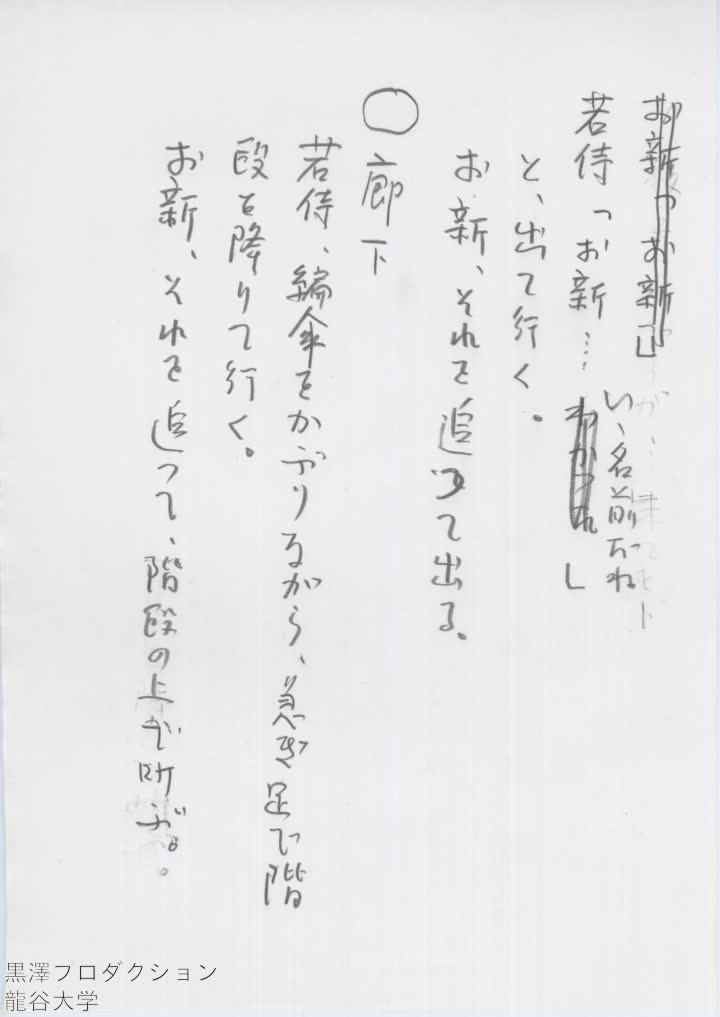 お新「お新」
若侍「お新…わかつた」
いゝ名前だね
と、出て行く。
お新、それを追つて出る。
○廊下
若侍、編傘をかぶりながら、急ぎ足で階
段を降りて行く。
お新、それを追つて、階段の上から叫ぶ。
黒澤プロダクション
龍谷大学